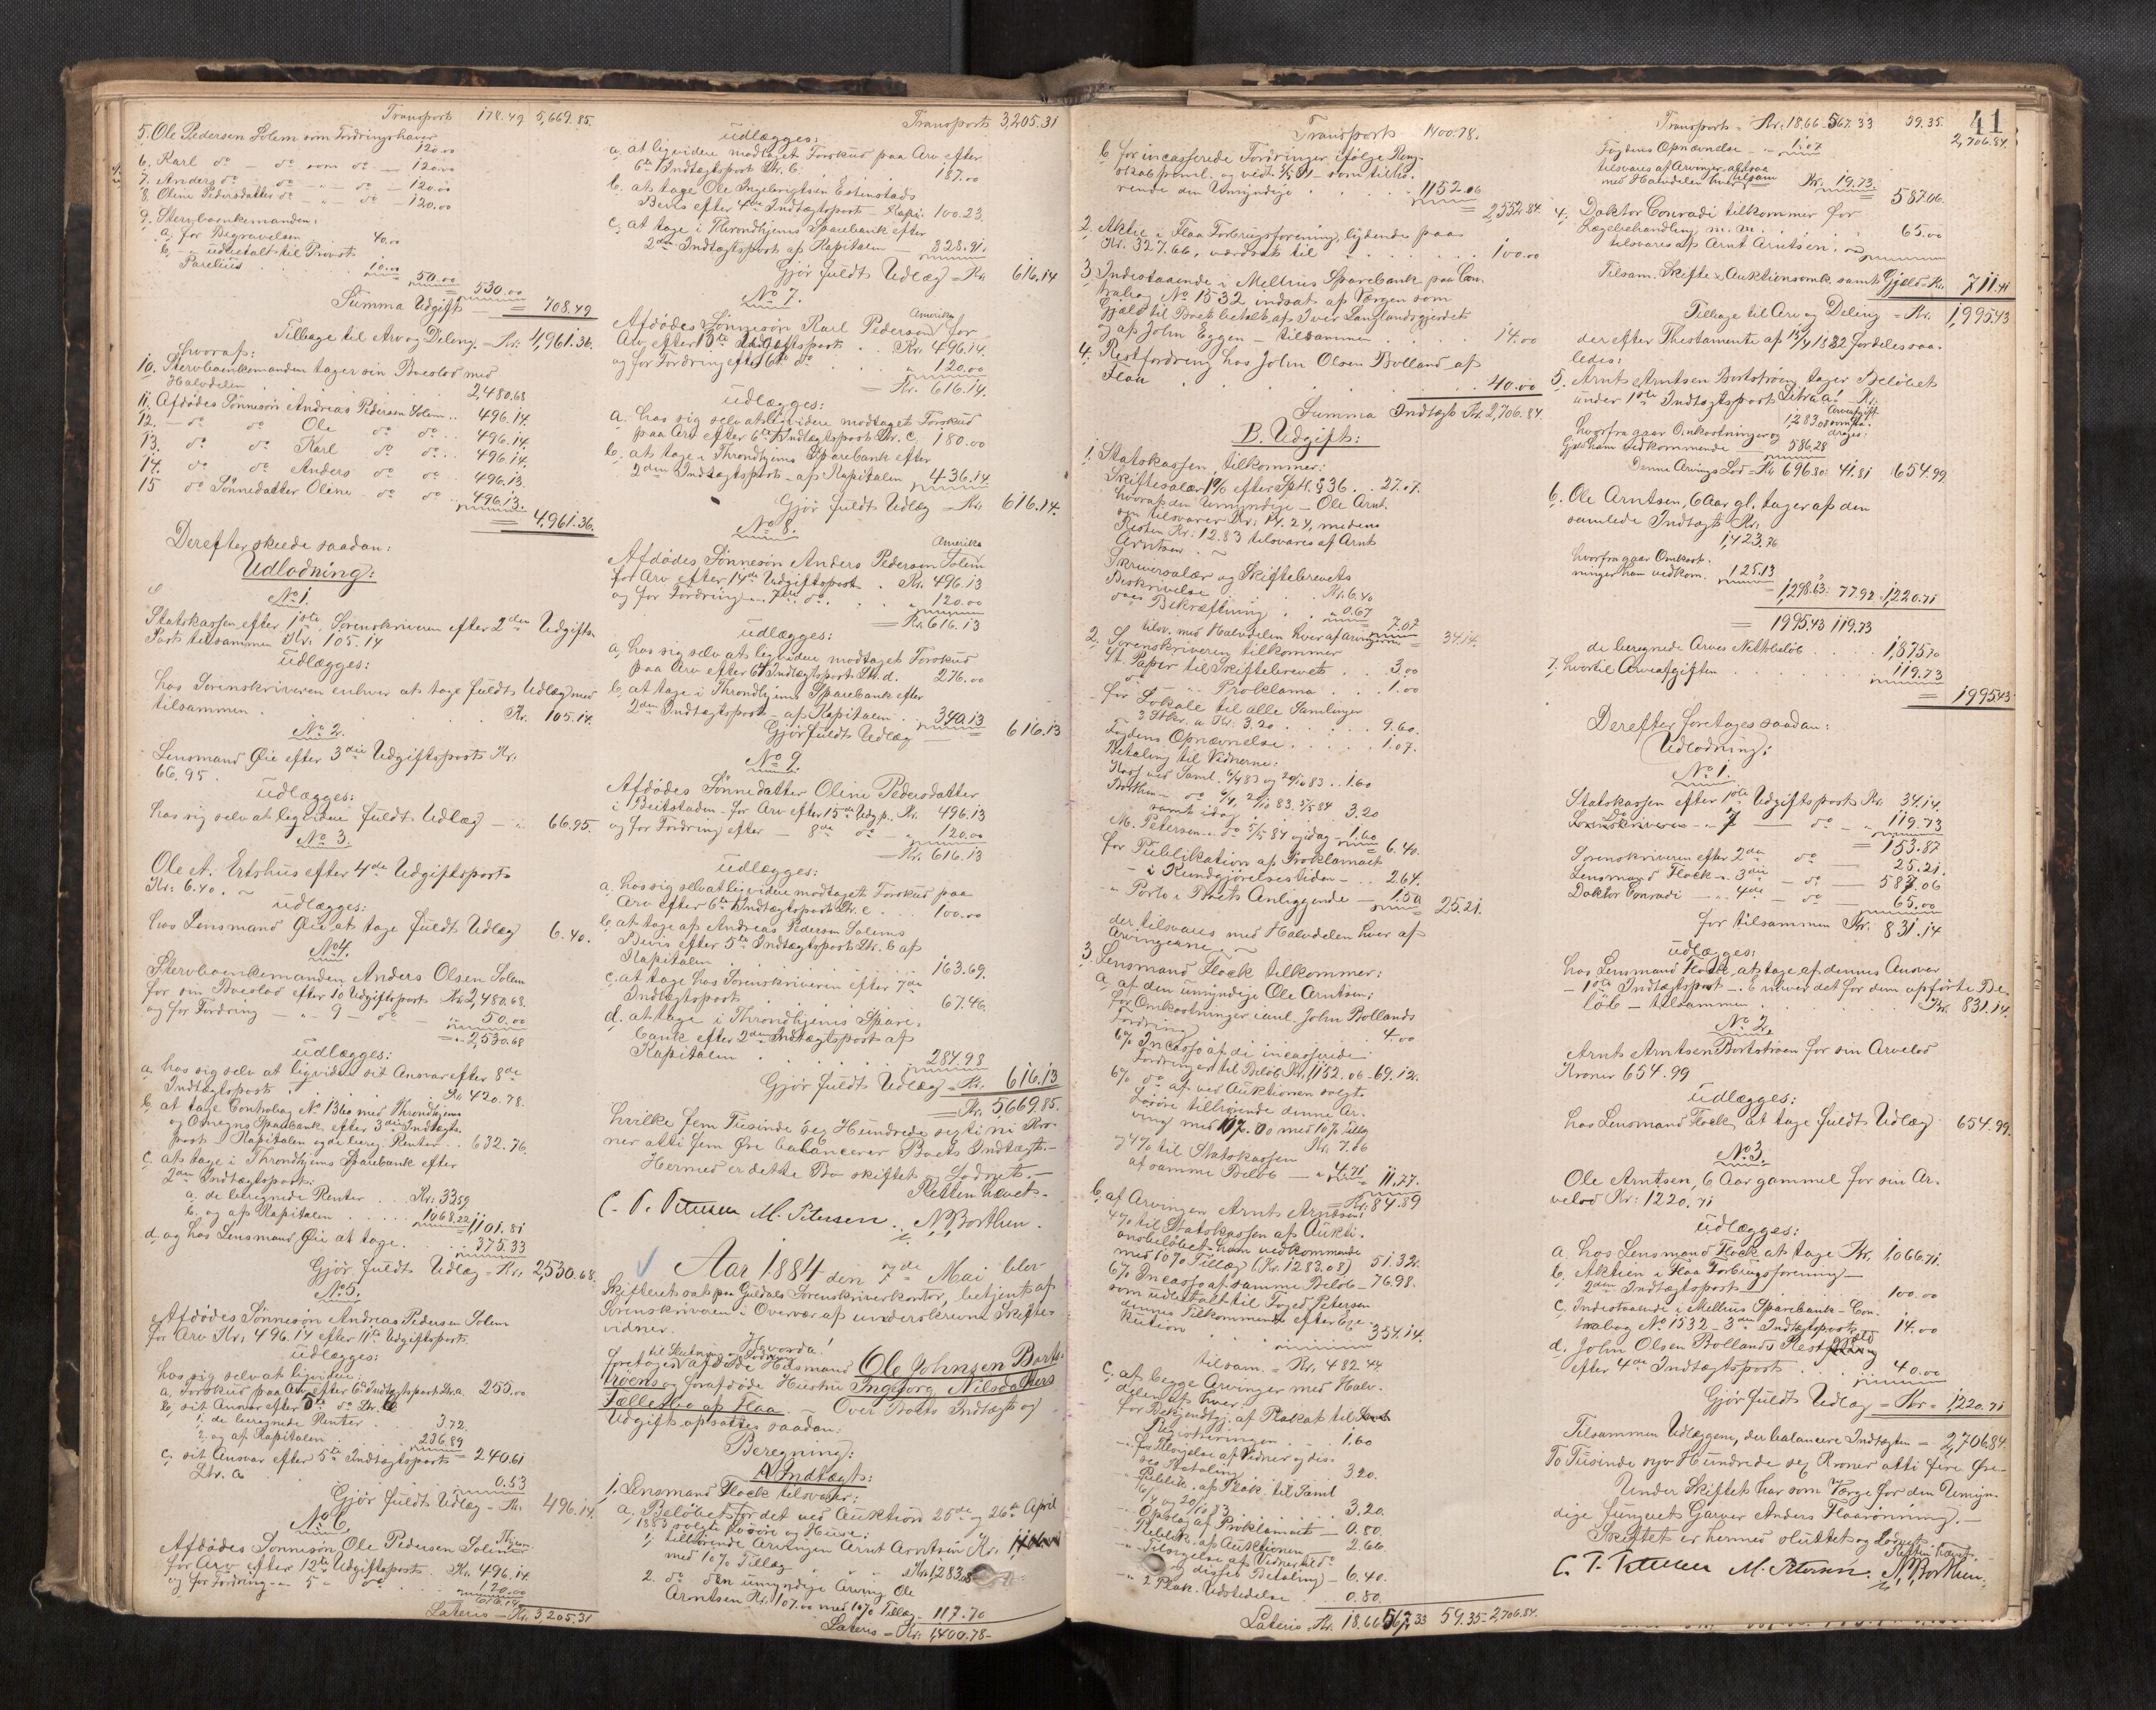 Transport 178.49 5,669.85.
5. Ole Pedersen Solem som Fordringshaver
120.00
6. Karl do - do som do - 120.00
7. Anders do - do - " - do - 120.00
8. Oline Pedersdatter do - " - do - 120.00
9. Stervboenkemanden:
a, for Begravelsen 40.00
b, - udbetalt til Provst
Parelius 10.00
50.00
= 530.00
Summa Udgift = 708.49
Tilbage til Arv og Deling = Kr: 4,961.36.
hvoraf:
10. Stervboenkemanden tager sin Boeslod med
Halvdelen 2,480.68
11. Afdødes Sønnesøn Andreas Pedersen Solem .. 496.14.
12. - do do Ole do do .. 496.14.
13. do do Karl do do .. 496.14.
14. do do Anders do do 496.13.
15 do Sønnedatter Oline - do do .. 496.13.
= 4,961.36.
Derefter skede saadan:
Udlodning:
No 1.
Statskassen efter 1ste, Sorenskriveren efter 2den Udgifts
Post tilsammen Kr: 105.14
udlægges:
hos Sorenskriveren enhver at tage fuldt Udlæg med
tilsammen . Kr. 105.14.
No 2.
Lensmand Øie efter 3die Udgiftspost Kr:
66.95.
udlægges:
hos sig selv at ligvidere fuldt Udlæg - " 66.95.
No 3.
Ole A. Ertshus efter 4de Udgiftspost
Kr: 6.40.
udlægges:
hos Lensmand Øie at tage fuldt Udlæg 6.40.
No 4.
Stervboenkemanden Anders Olsen Solem
for sin Boeslod efter 10 Udgiftspost Kr 2,480.68.
og for Fordring - " - 9 - do - 50.00
= " 2,530.68
udlægges:
a, hos sig selv at ligvidere sit Ansvar efter 8de
Indtægtspost Kr 420.78.
b, at tage Contrabog No 1360 med Throndhjems
og Omegns Sparebank efter 3die Indtægts-
post i Kapitalen og de bereg. Renter .. 632.76.
c, at tage i Throndhjems Sparebank efter
2den Indtægtspost:
a. de beregnede Renter . . Kr: 33.59
b. og af Kapitalen . . . 1068.22 1101.81
d, og hos Lensmand Øie at tage . 375.33
Gjør fuldt Udlæg = Kr: 2,530.68.
No 5.
Afdødes Sønnesøn Andreas Pedersen Solem
for Arv Kr: 496.14 efter 11te Udgiftspost
udlægges:
hos sig selv at ligvidere:
a, Forskud paa Arv efter 6te Indtægtspost Ltr. a. 255.00
b, sit Ansvar efter 5te do Ltr. b
1, de beregnede Renter . 3.72.
2, og af Kapitalen . 236.89
= 240.61
c, sit Ansvar efter 5te Indtægtspost
Ltr. a 0.53
Gjør fuldt Udlæg = Kr. 496.14.
No 6.
Afdødes Sønnesøn Ole Pedersen Solem
for Arv efter 12te Udgiftspost . Kr. 496.14
og for Fordring " 5 - do . 120.00
616.14
Lateris = Kr. 3,205.31
Transport 3,205.31
udlægges:
a, at ligvidere modtaget Forskud paa Arv efter
6te Indtægtspost Ltr. b. 187.00
b, at tage Ole Ingebrigtsen Estenstads
Bevis efter 4de Indtægtspost - Kapi: 100.23.
c, at tage i Throndhjems Sparebank efter
2den Indtægtspost af Kapitalen - 328.91.
Gjør fuldt Udlæg = Kr: 616.14
No 7.
Amerika
Afdødes Sønnesøn Karl Pedersen for
Arv efter 13te Udgiftspost . . Kr: 496.14.
og for Fordring efter 6te do 120.00
= Kr. 616.14.
udlægges:
a, hos sig selv at ligvidere modtaget Forskud
paa Arv efter 6te Indtægtspost Ltr. c, 180.00
b, at tage i Throndhjems Sparebank efter
2den Indtægtspost - af Kapitalen 436.14
Gjør fuldt Udlæg = Kr: 616.14.
No 8.
Amerika
Afdødes Sønnesøn Anders Pedersen Solem
for Arv efter 14de Udgiftspost . Kr. 496.13
og for Fordring - " 7de do . . 120.00
= Kr. 616.13
udlægges:
a, hos sig selv at ligvidere modtaget Forskud
paa Arv efter 6te Indtægtspost Ltr. d. 276.00
b, at tage i Throndhjems Sparebank efter
2den Indtægtspost - af Kapitalen . 340.13
Gjør fuldt Udlæg 616.13
No 9.
Afdødes Sønnedatter Oline Pedersdatter
i Beitstaden for Arv efter 15de Udgp. Kr. 496.13
og for Fordring efter - 8de do - " 120.00
= Kr. 616.13
udlægges:
a, hos sig selv at ligvidere modtaget Forskud paa
Arv efter 6te Indtægtspost Ltr. e . . 100.00
b, at tage af Andreas Pedersen Solems
Bevis efter 5te Indtægtspost Ltr. b af
Kapitalen 163.69.
c, at tage hos Sorenskriveren efter 7de
Indtægtspost 67.46.
d, at tage i Throndhjems Spare-
bank efter 2den Indtægtspost af
Kapitalen 284.98
Gjør fuldt Udlæg = Kr. 616.13
= Kr. 5,669.85.
hvilke fem Tusinde sex Hundrede sexti ni Kro-
ner otti fem Øre balancerer Boets Indtægt. -
Hermed er dette Bo skiftet og Lodnet. -
Retten hævet. -
C. T. Petersen M. Petersen. N. Borthen.
Aar 1884 den 7de Mai blev
Skifteret sat paa Guldals Sorenskriverkontor, betjent af
Sorenskriveren i Overvær af underskrevne Skifte-
vidner.
Hvorda!
til Slutning og Lodning
foretoges afdøde Husmand Ole Johnsen Borts-
trøens og forafdøde Hustru Ingeborg Nilsdatters
Fællesbo af Flaa. - Over Boets Indtægt og
Udgift opsattes saadan:
Beregning:
A, Indtægt:
1, Lensmand Flock tilsvarer:
a, Beløbet for det ved Auktion 25de og 26te April
1883 solgte Løsøre og Huse:
1, tilhørende Arvingen Arnt Arntsen Kr.
med 10% Tillæg Kr. 1,283.08
2. do den umyndige Arving Ole
Arntsen Kr. 107.00 med 10% Tillæg - 117.70
Lateris = Kr: 1,400.78 -
41
Transport 1400.78.
b, for incasserede Fordringer ifølge Reg-
rende den Umyndige . . . " 1152.06
= 2,552.84.
2, Aktie i Flaa Forbrugsforening, lydende paa
Kr. 327.66, værdsat til . . . 100.00
3, Indestaaende i Melhus Sparebank paa Con-
trabog No 1532 indsat af Værgen som
Gjæld til Boet betalt af Iver Langlandsgjerdet
og af John Eggen - tilsammen . . 14.00
4. Restfordring hos John Olsen Bolland af
Flaa 40.00
Summa Indtægt Kr. 2,706.84.
B. Udgift:
1, Statskassen tilkommer:
Skiftesalær 1% efter Sptl. § 36 . . 27.07.
hvoraf den Umyndige - Ole Arnt-
sen tilsvarer Kr. 14.24, medens
Resten Kr: 12.83 tilsvares af Arnt
Arntsen. -
Skriversalær og Skiftebrevets
Beskrivelse . . . Kr. 6.40
dets Bekræftning . . " 0.67
7.07
tilsv. med Halvdelen hver af Arvingerne = 34.14.
2. Sorenskriveren tilkommer
St. Papir til Skiftebrevet . . 3.00
do - " - Proklama . . 1.00
for Lokale til alle Samlinger
3 Stkr. a Kr: 3.20 . . . 9.60.
Fogdens Opnævnelse . . . 1.07.
Betaling til Vidnerne:
samt idag . . 3.20
M. Petersen - do 5/5 84 og idag - 1.60
= 6.40.
for Publikation af Proklamaet
i Kundgjørelsestiden - . . 2.64.
" Porto i Boets Anliggende - 1.50 25.21.
der tilsvares med Halvdelen hver af
Arvingerne. -
3, Lensmand Flock tilkommer:
a, af den umyndige Ole Arntsen:
for Omkostninger i anl. John Bollands
Fordring 4.00
6% Incasso af de incasserede
Fordringer til Beløb Kr. 1,152.06 - 69.12.
6% do af ved Auktionen solgt
Løsøre tilhørende denne Ar-
ving med 107.00 med 10% Tillæg
Kr. 7.06
og 4% til Statskassen
af samme Beløb - " 4.71 11.77.
= Kr. 84.89
b, af Arvingen Arnt Arntsen:
4% til Statskassen af Aukti-
onsbeløbet ham vedkommende
med 10% Tillæg (Kr. 1283.08) 51.32.
6% Incasso af samme Beløb - 76.98.
som udbetalt til Foged Petersen
dennes Tilkommende efter Exe-
kution 354.14.
tilsam. = Kr. 482.44
c, af begge Arvinger med Halv-
delen af hver:
for Bekjendtgj. af Plakat til
Registreringen . . . 1.60
" Tilsigelse af Vidner og dis-
ses Betaling 3.20.
" Publik. af Plak. til Saml
3.20.
" Opslag af Proklamaet - 0.80.
" Publik. af Auktionen - 2.66.
" Tilsigelse af Vidner til do
og disses Betaling - 6.40.
" 2 Plak. Udstedelse . . 0.80.
Lateris = Kr. 18.66 567.33 59.35 - 2,706.84.
Transport = Kr: 18.66 567.33 59.35.
2,706.84.
Fogdens Opnævnelse - " 1.07
tilsvares af Arvinger
med Halvdelen hver tilsam Kr. 19.73.
587.06.
4, Doktor Conradi tilkommer for
Lægebehandling m. m. . . 65.00
tilsvares af Arnt Arntsen.
Tilsam. Skifte & Auktionsomk. samt Gjæld = Kr. 711.41
Tilbage til Arv og Deling = Kr. 1,995.43
der efter Thestamente af 15/4 1882 fordeles saa-
ledes:
5. Arnt Arntsen Bortstrøen, tager Beløbet
under 1ste Indtægtspost Litra a! Kr:
1,283.08
hvorfra gaar Omkostninger og
Gjæld ham vedkommende 586.28
Denne Arvings Lod = Kr. 696.80: 41.81 654.99
6. Ole Arntsen, 6 Aar gl. tager af den
samlede Indtægt Kr:
1,423.76
hvorfra gaar Omkost-
ninger ham vedkom. 125.13
1,298.63: 77.92 1,220.71
= 1995.43 119.73
de beregnede Arves Nettobeløb . . . 1,875.70
7. hvortil Arveafgiften 119.73
= 1995.43
Derefter foretoges saadan:
Udlodning:
No 1.
Statskassen efter 1ste Udgiftspost Kr. 34.14.
do - " 7 do - " 119.73
= 153.87
Sorenskriveren efter 2den do 25.21.
Lensmand Flock - " 3die - do - 587.06
Doktor Conradi - " 4de - do - 65.00
for tilsammen Kr. 831.14
udlægges:
hos Lensmand Flock, at tage af dennes Ansvar
- 1ste Indtægtspost - Enhver det for dem opførte Be-
løb - tilsammen . . . Kr. 831.14.
No 2.
Arnt Arntsen Bortstrøen for sin Arvelod
Kroner 654.99
udlægges:
hos Lensmand Flock, at tage fuldt Udlæg 654.99.
No 3.
Ole Arntsen, 6 Aar gammel for sin Ar-
velod Kr: 1220.71
udlægges:
a, hos Lensmand Flock at tage Kr. 1066.71.
b, Aktien i Flaa Forbrugsforening -
2den Indtægtspost - 100.00
c, Indestaaende i Melhus Sparebank - Con-
trabog No 1532 - 3die Indtægtspost 14.00
d, John Olsen Bollands Rest
efter 4de Indtægtspost . . 40.00
Gjør fuldt Udlæg = Kr = 1,220.71
Tilsammen Udlæggene, der balancere Indtægten = 2,706.84.
To Tusinde syv Hundrede sex Kroner otti fire Øre -
Under Skiftet har som Værge for den Umyn-
dige fungeret Garver Anders Flaarønning. -
Skiftet er hermed sluttet og Lodnet.
Retten hævet. -
C. T. Petersen M. Petersen. N. Borthen.